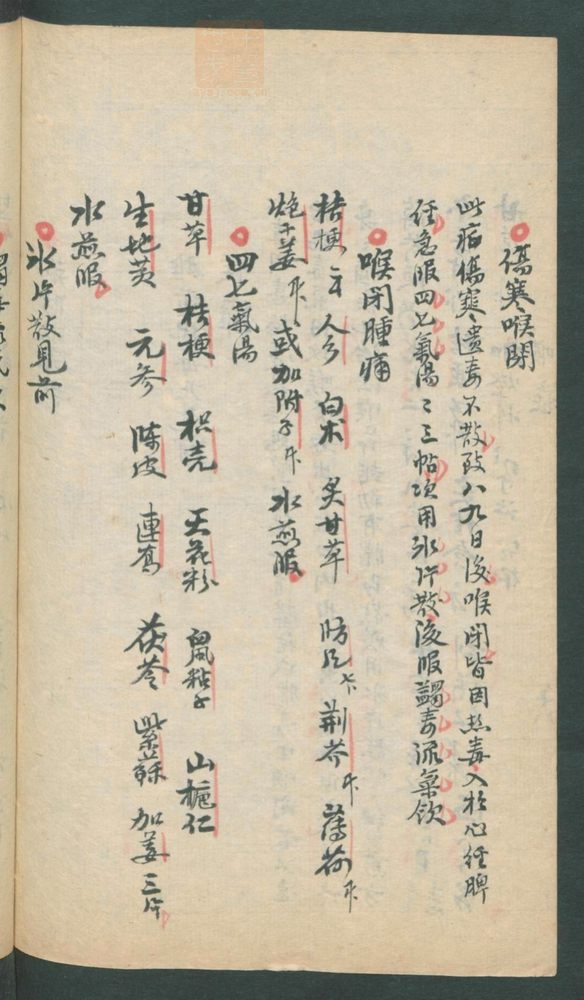 傷寒喉閉
此症傷寒遺毒不散致八九日後喉閉皆因热毒入於心经脾
经急服四七氣湯二三帖次用氷片散後服蠲毒流氣飲
喉閉腫痛
桔梗 人参 白术 炙甘草 防风 荆芥 薄荷
炮干姜 或加附子 水煎服
四七氣湯
甘草 桔梗 枳壳 天花粉 鼠粘子 山梔仁
生地黄 元参 陈皮 連翘 茯苓 紫蘇 加姜三片
水煎服
氷片散見前